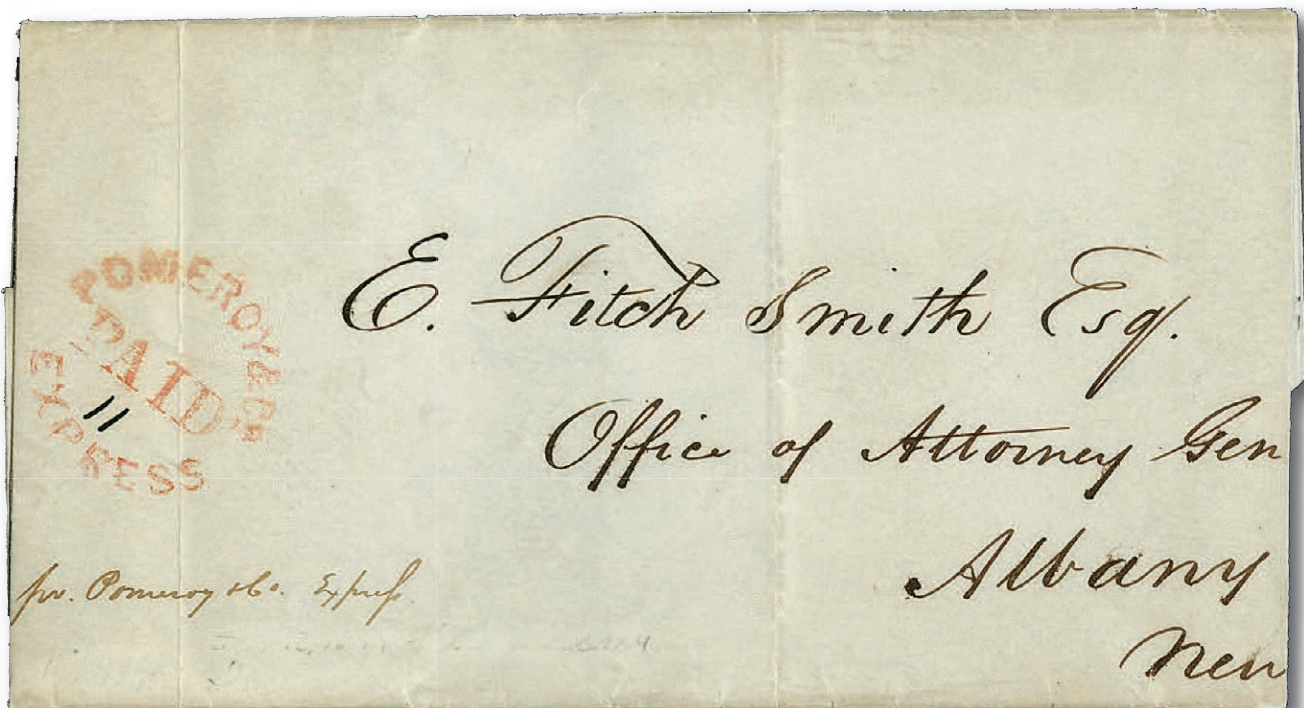 POMEROY & Co
PAID
11
EXPRESS
E. Fitch Smith Esq.
Office of Attorney Gen
Albany
New
pr. Pomeroy & Co. Express.